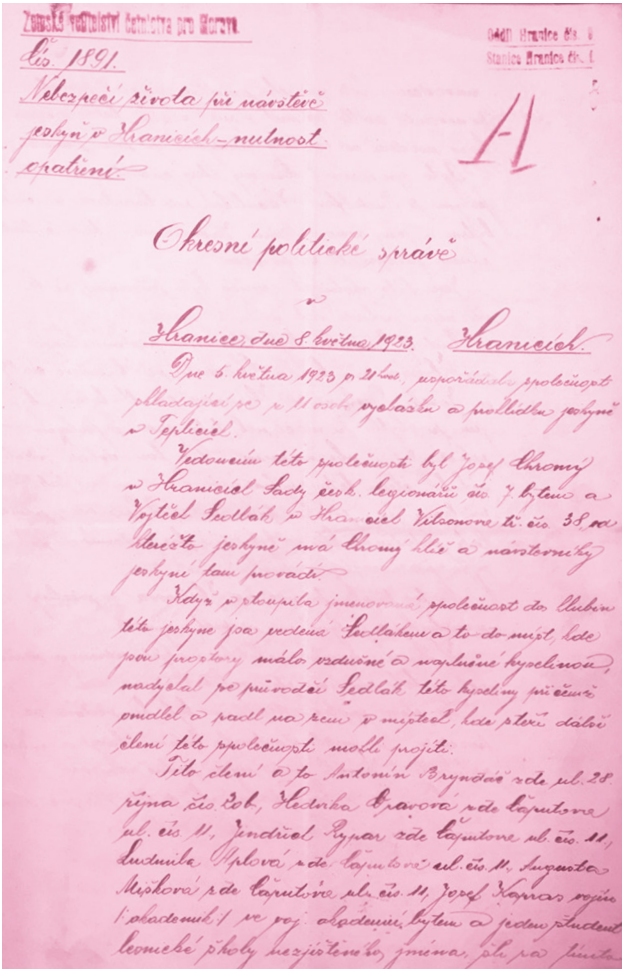 Zemské velitelství četnictva pro Moravu.
Odděl. Hranice čís.
Stanice Hranice čís.
čís. 1891.
Nebezpečí života při návštěvě
jeskyň v Hranicích – nutnost
opatření.
Okresní politické správě
v
Hranice, dne 8 května 1923. Hranicích.
Dne 5. května 1923 o 21 hod. uspořádala společnost
skládající se z 11 osob vycházku a prohlídku jeskyně
v Teplicích.
Vedoucím této společnosti byl Josef Chromý
v Hranicích Sady česk. legionářů čís. 7. bytem a
Vojtěch Sedlák v Hranicích Vilsonova tř. čís. 38, od
kteréžto jeskyně má Chromý klíč a návštěvníky
jeskyní tam provádí.
Když vstoupila jmenovaná společnost do hlubin
této jeskyne jsa vedena Sedlákem a to do míst, kde
jsou prostory málo vzdušné a naplněné kyselinou,
nadýchal se průvodčí Sedlák této kyseliny při čemž
omdlel a padl na zem v místech, kde stěží další
členi této společnosti mohli projíti.
Tito členi a to Antonín Bryndáč zde ul. 28.
října čís. 206, Hedvika Opavová zde Čáputova
ul. čís. 11, Jindřich Rypar zde Čáputova ul. čís. 11,
Ludmila zde Čáputova ul. čís. 11, Augusta
Mišková zde Čáputova ul. čís. 11, Josef Kapras vojín
/: akademik :/ ve voj. akademii bytem a jeden student
lesnické školy nezjištěného jména, šli za tímto